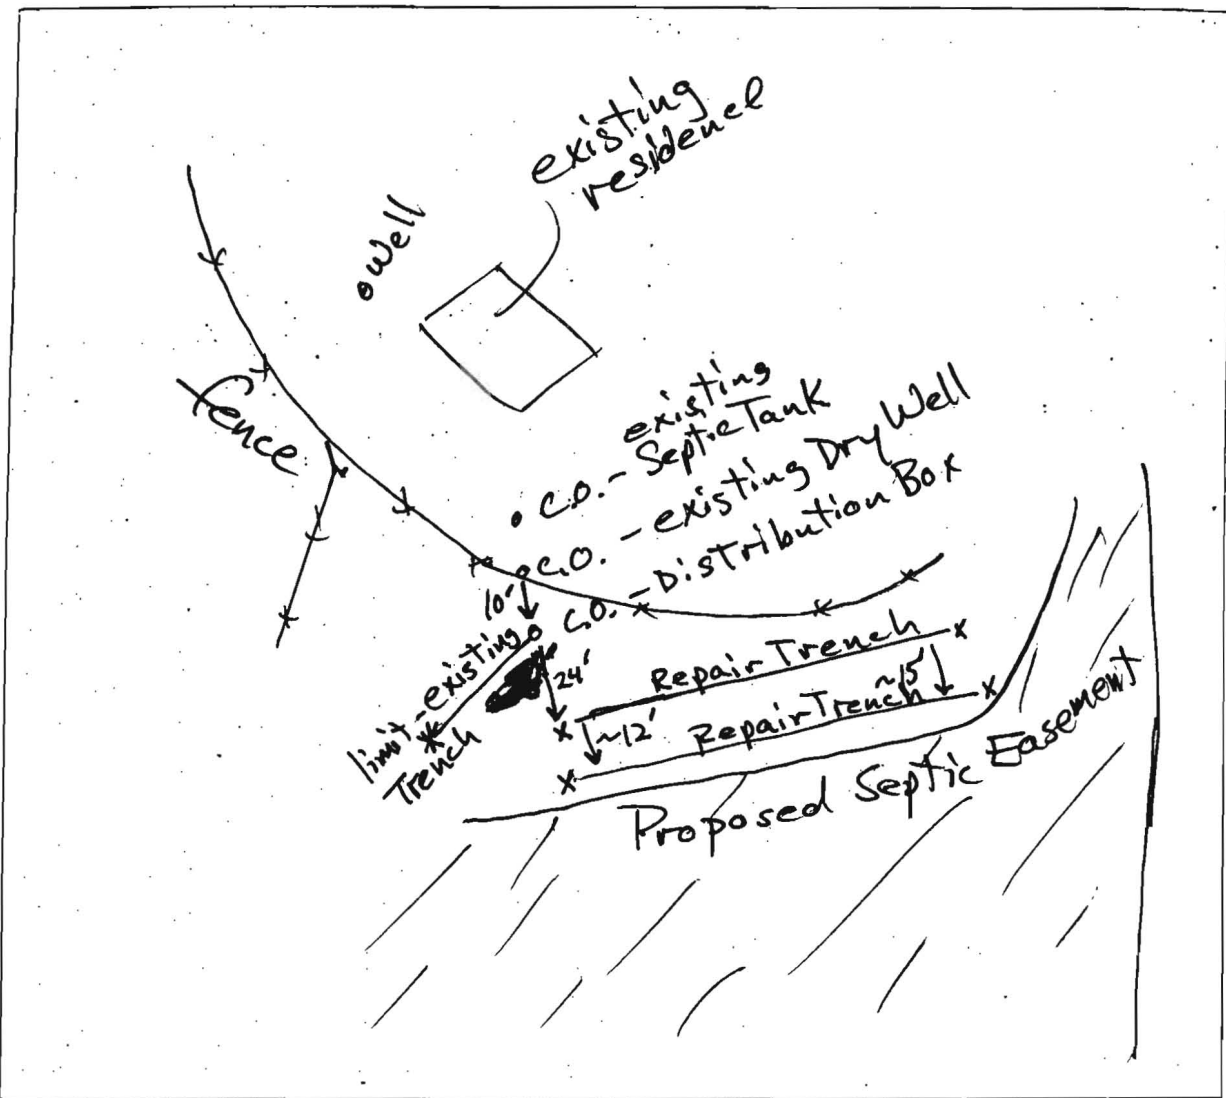 existing
residence
Well
fence
existing
C.O. - Septic Tank
C.O. - existing Dry Well
10'
C.O. - Distribution Box
limit - existing
Trench
24'
Repair Trench
~15'
~12'
Repair Trench
Proposed Septic Easement